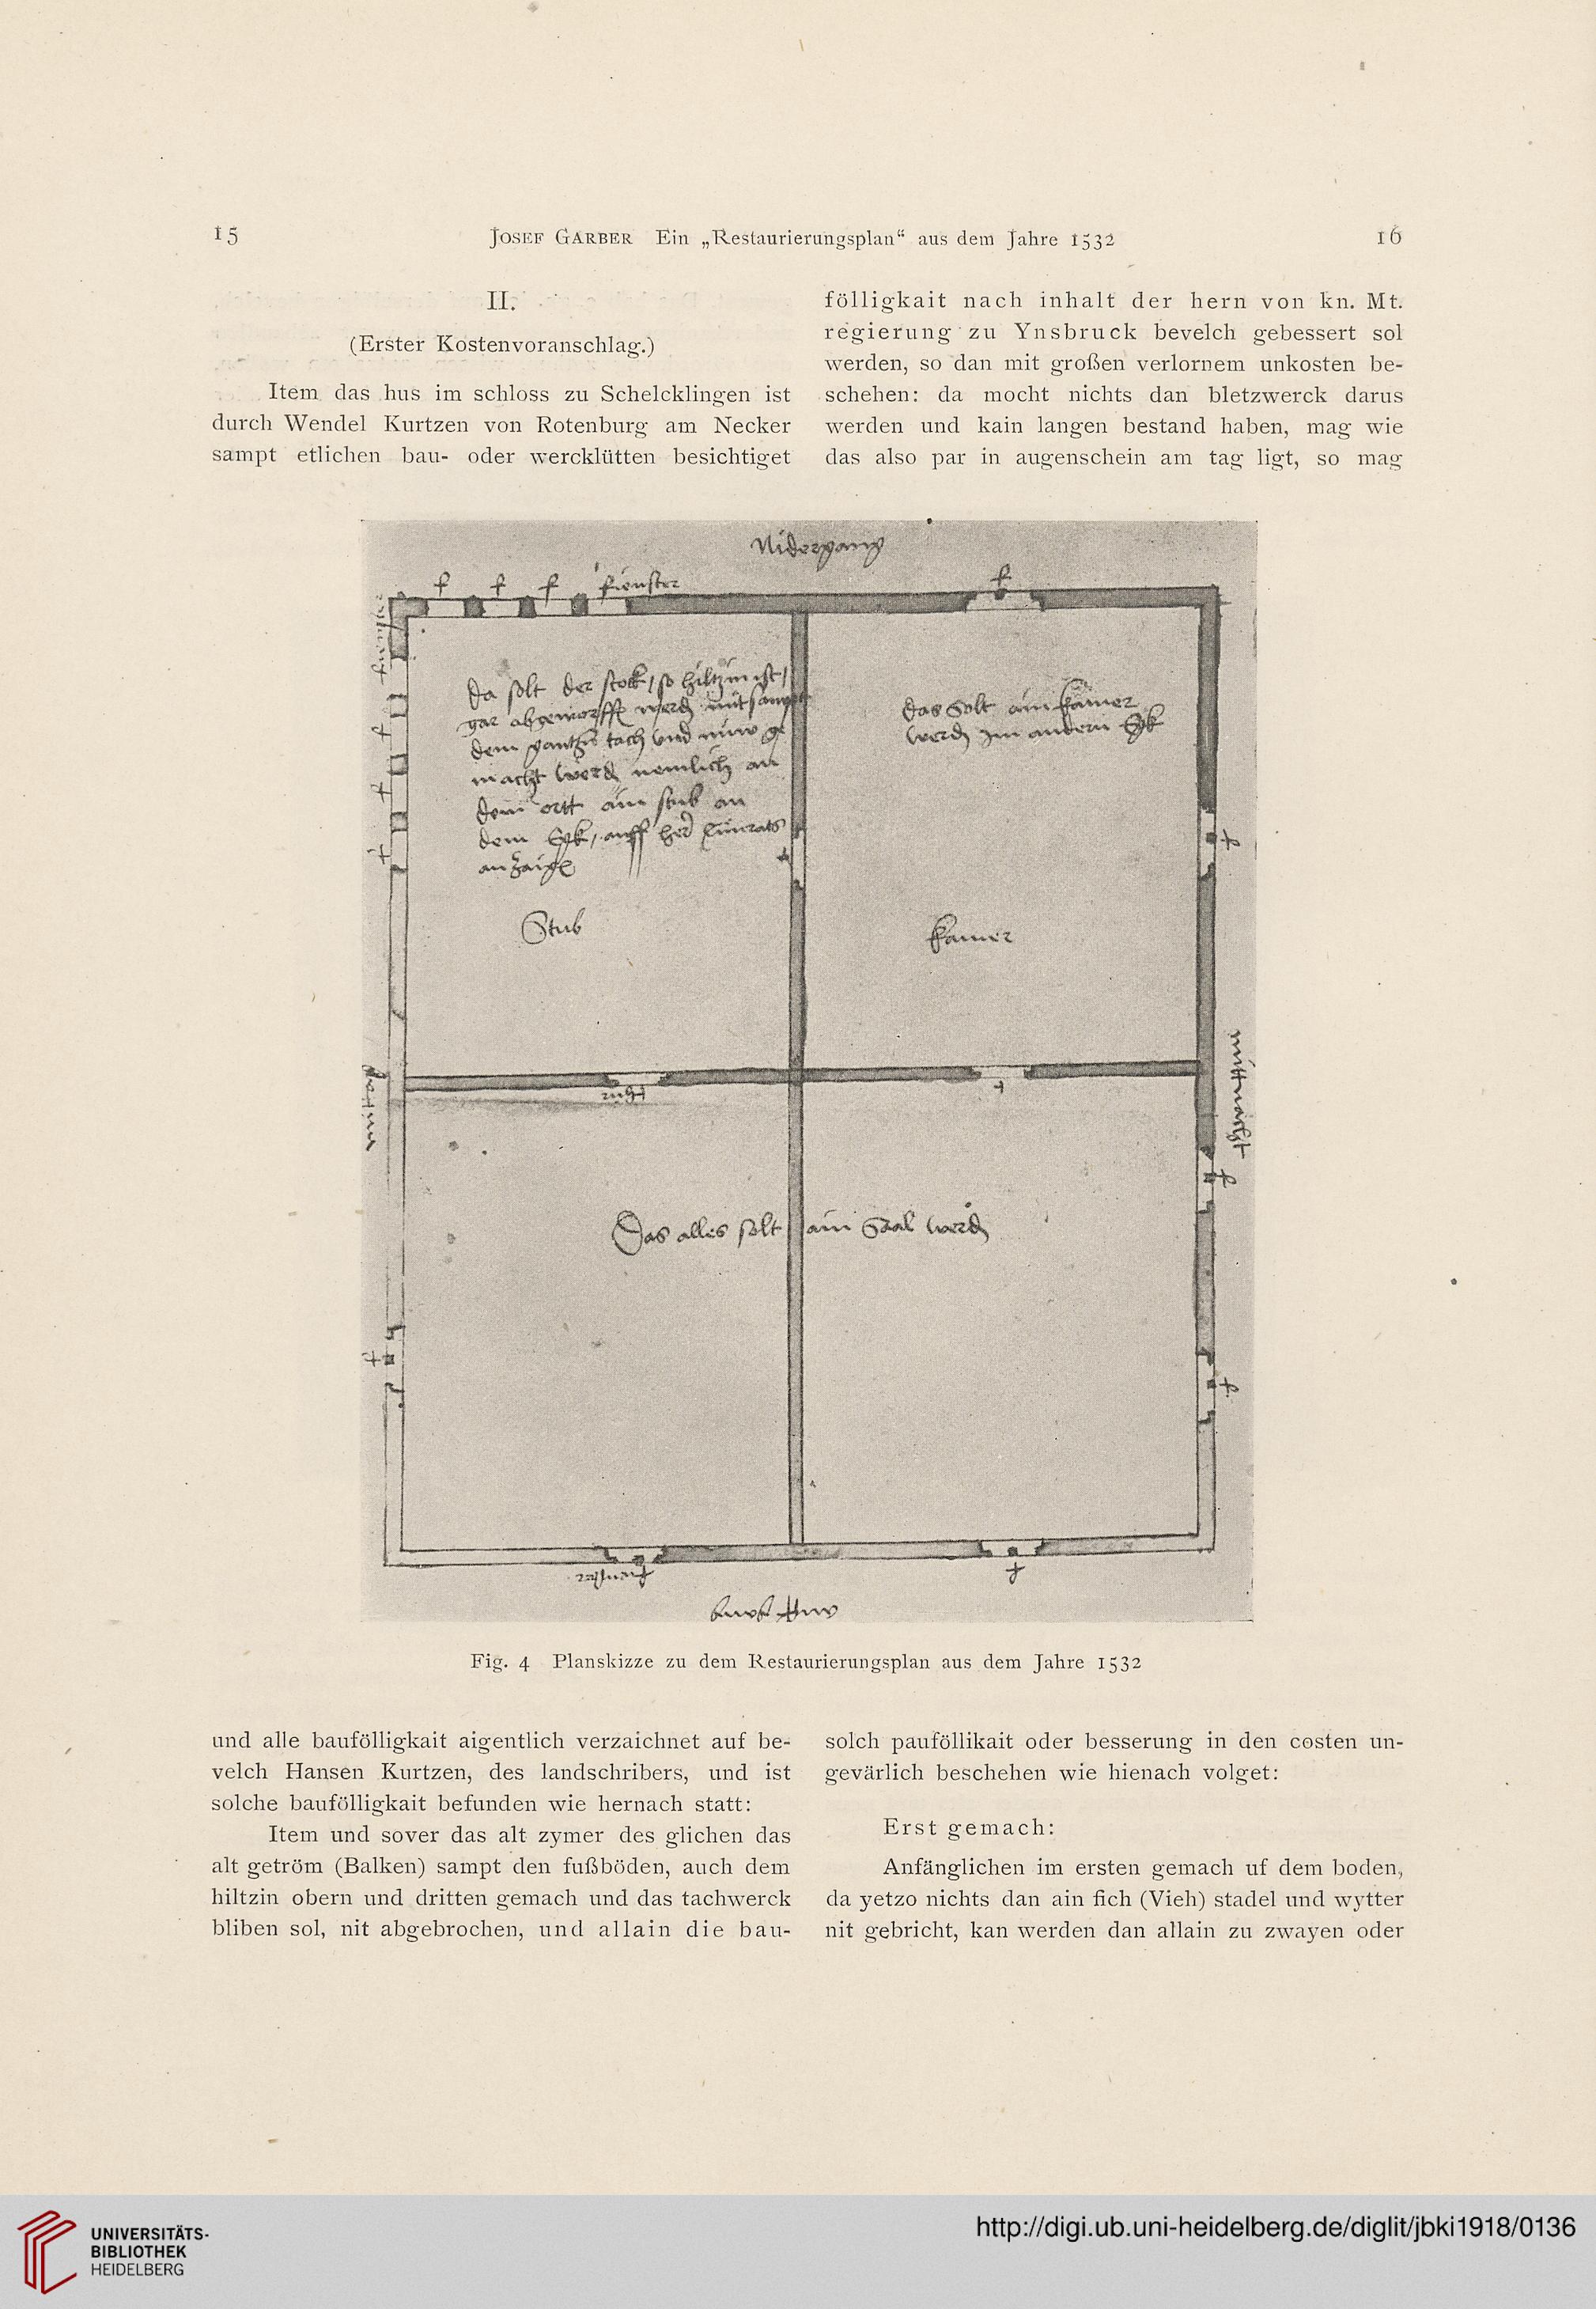 15
JOSEF GARBER Ein „Restaurierungsplan“ aus dem Jahre 1532
16
II.
(Erster Kostenvoranschlag.)
Item das hus im schloss zu Schelcklingen ist
durch Wendel Kurtzen von Rotenburg am Necker
sampt etlichen bau- oder wercklütten besichtiget
fölligkait nach inhalt der hern von kn. Mt.
regierung zu Ynsbruck bevelch gebessert sol
werden, so dan mit großen verlornem unkosten be-
schehen: da mocht nichts dan bletzwerck darus
werden und kain langen bestand haben, mag wie
das also par in augenschein am tag ligt, so mag
Nidergang
f f f fienster
f
da solt der stock, so hiltzin ist,
gar abgeworffen werden mit sampt
dem gantzen tach und nuw ge
macht werden nemlich an
dem ortt ain stub an
dem Egk, auff her Cunrats
anzaigen
das Solt ain kamer
werden im andern Egk
Stub
kamer
mittnacht
thür
Das alles solt ain Saal werden
fienster
Fig. 4 Planskizze zu dem Restaurierungsplan aus dem Jahre 1532
und alle baufölligkait aigentlich verzaichnet auf be-
velch Hansen Kurtzen, des landschribers, und ist
solche baufölligkait befunden wie hernach statt:
Item und sover das alt zymer des glichen das
alt geström (Balken) sampt den fußböden, auch dem
hiltzin obern und dritten gemach und das tachwerck
bliben sol, nit abgebrochen, und allain die bau-
solch pauföllikait oder besserung in den costen un-
gevärlich beschehen wie hienach volget:
Erst gemach:
Anfänglichen im ersten gemach uf dem boden,
da yetzo nichts dan ain fich (Vieh) stadel und wytter
nit gebricht, kan werden dan allain zu zwayen oder
UNIVERSITÄTS-
BIBLIOTHEK
HEIDELBERG
http://digi.ub.uni-heidelberg.de/diglit/jbki1918/0136